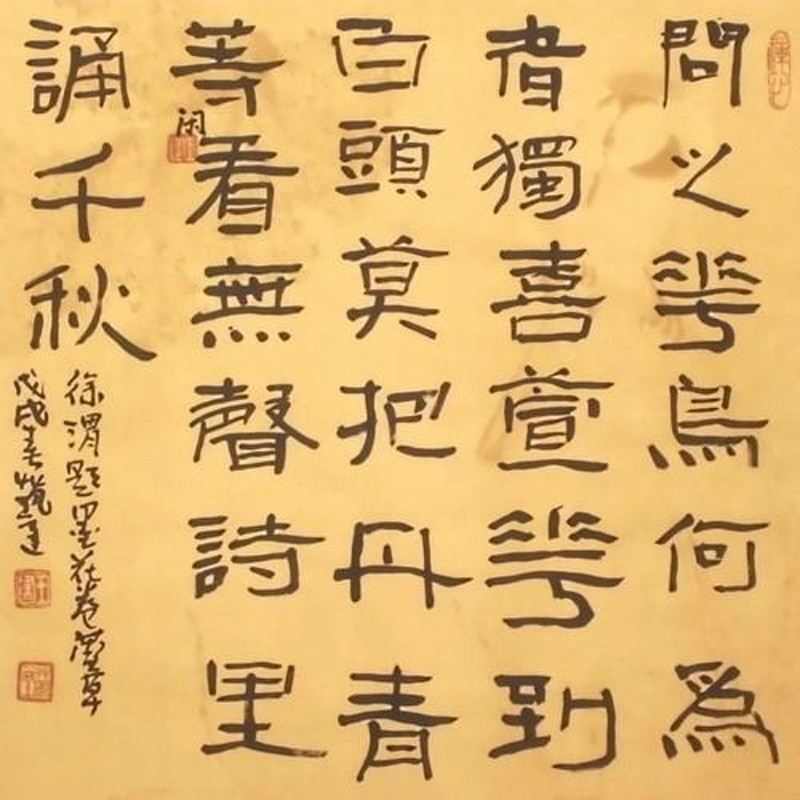 問之華鳥何為
者獨喜萱華到
白頭莫把丹青
等閑看無聲詩里
誦千秋
徐渭題墨花卷
戊戌春